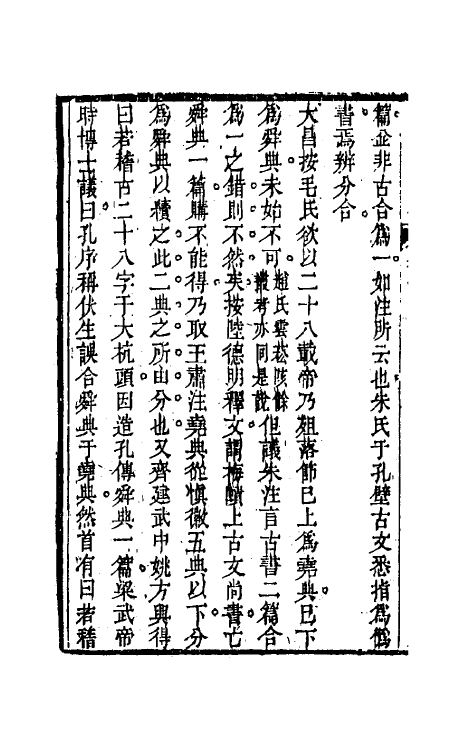 篇並非古合爲一如注所云也朱氏于孔壁古文悉指爲僞
書焉辨分合
大昌按毛氏欲以二十八載帝乃殂落節已上爲堯典已下
爲舜典未始不可趙氏雲崧陔餘叢考亦同是說但議朱注言古書二篇合
爲一之錯則不然矣按陸德明釋文謂梅賾上古文尚書亡
舜典一篇購不能得乃取王肅注堯典從愼徽五典以下分
爲舜典以續之此二典之所由分也又齊建武中姚方興得
曰若稽古二十八字于大杭頭因造孔傳舜典一篇梁武帝
時博士議曰孔序稱伏生誤合舜典于堯典然首有曰若稽